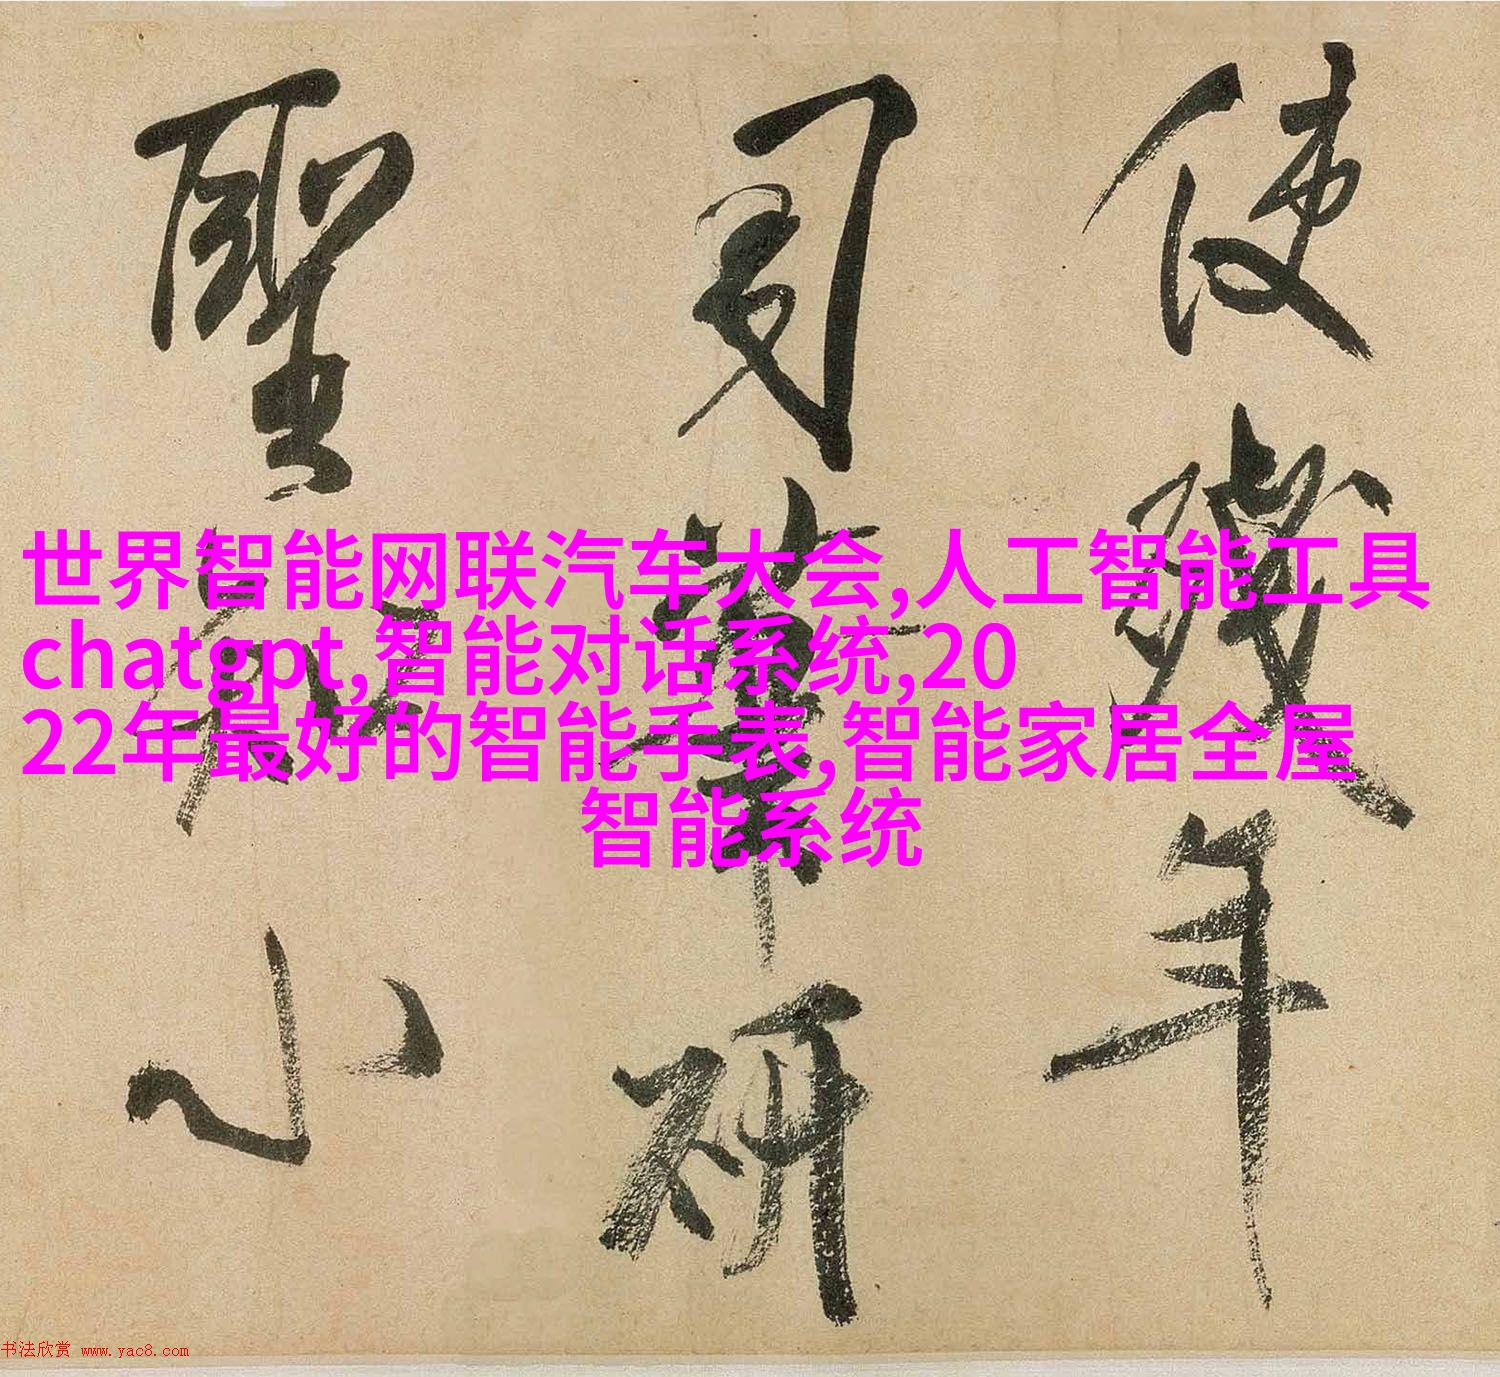 世界智能网联汽车大会,人工智能工具
chatgpt,智能对话系统,20
22年最好的智能手表,智能家居全屋
智能系统
使殘年
筆研
聖小
书法欣赏 www.yac8.com